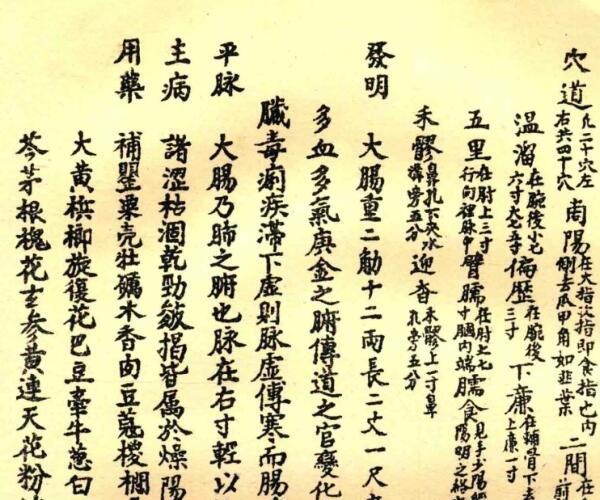 穴道 凡二十穴左右共四十穴 商陽 在大指次指即食指也内側去爪甲角如韭葉 二間
温溜 在腕後小七寸大 偏歷 在腕後三寸 下廉 在輔骨下去上廉一寸
五里 在肘上三寸行向裡脉中 臂臑 在肘上七寸䐃内端 臑會
禾髎 鼻孔下夾水溝旁五分 迎香 禾髎上一寸鼻孔旁五分
發明 大腸重二觔十二兩長二丈一尺
多血多氣庚金之腑傳道之官變化
臟毒痢疾滯下虚則脉虚傳寒而腸
平脉 大腸乃肺之腑也脉在右寸輕以
主病 諸澀枯涸乾勁皴揭皆属於燥陽
用藥 補罌粟壳壮礪木香肉豆蔻椶櫚
大黄梹榔旋復花巴豆牽牛葱白
芩茅根槐花玄参黄連天花粉